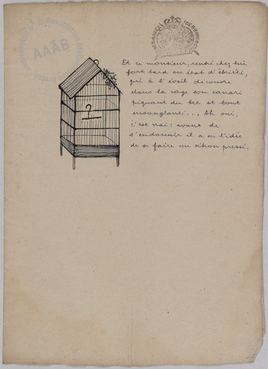 AAAB
Et ce monsieur, rentré chez lui
fort tard en état d'ébriété,
qui à l'éveil découvre
dans la cage son canari
piquant du bec et tout
ensanglanté..., Eh oui,
c'est vrai: avant de
s'endormir il a eu l'idée
de se faire un citron pressé.